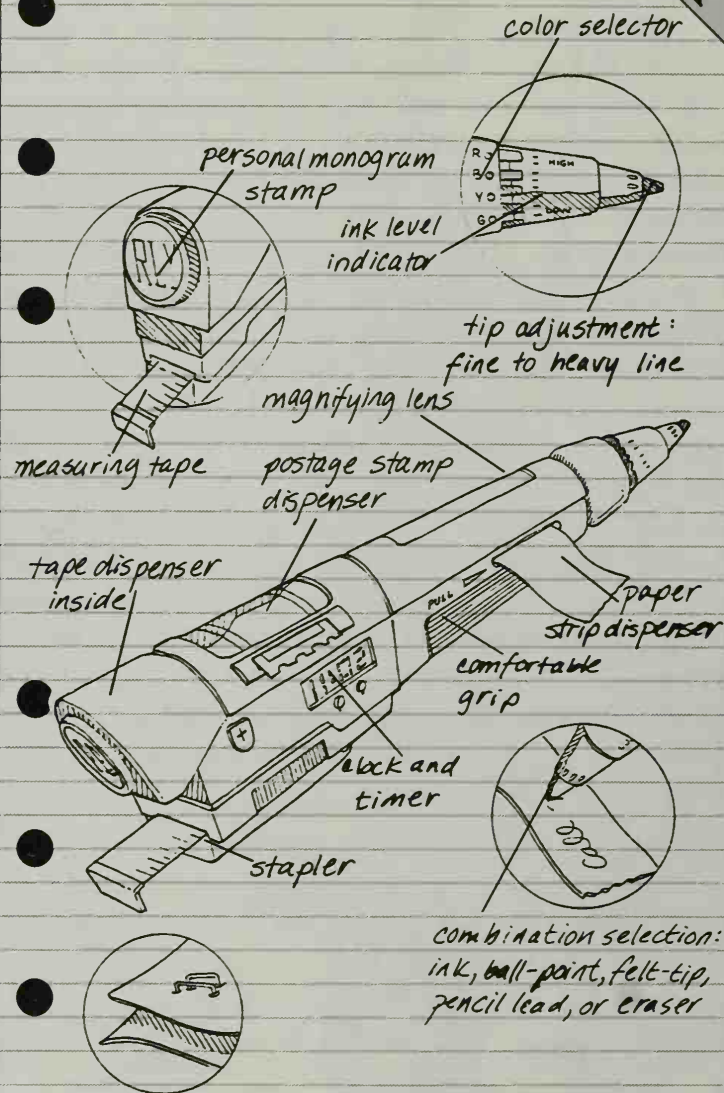 color selector
R
B
Y
G
HIGH
LOW
personal monogram
stamp
RLY
ink level
indicator
tip adjustment:
fine to heavy line
measuring tape
magnifying lens
postage stamp
dispenser
tape dispenser
inside
PULL
paper
strip dispenser
comfortable
grip
clock and
timer
stapler
combination selection:
ink, ball-point, felt-tip,
pencil lead, or eraser